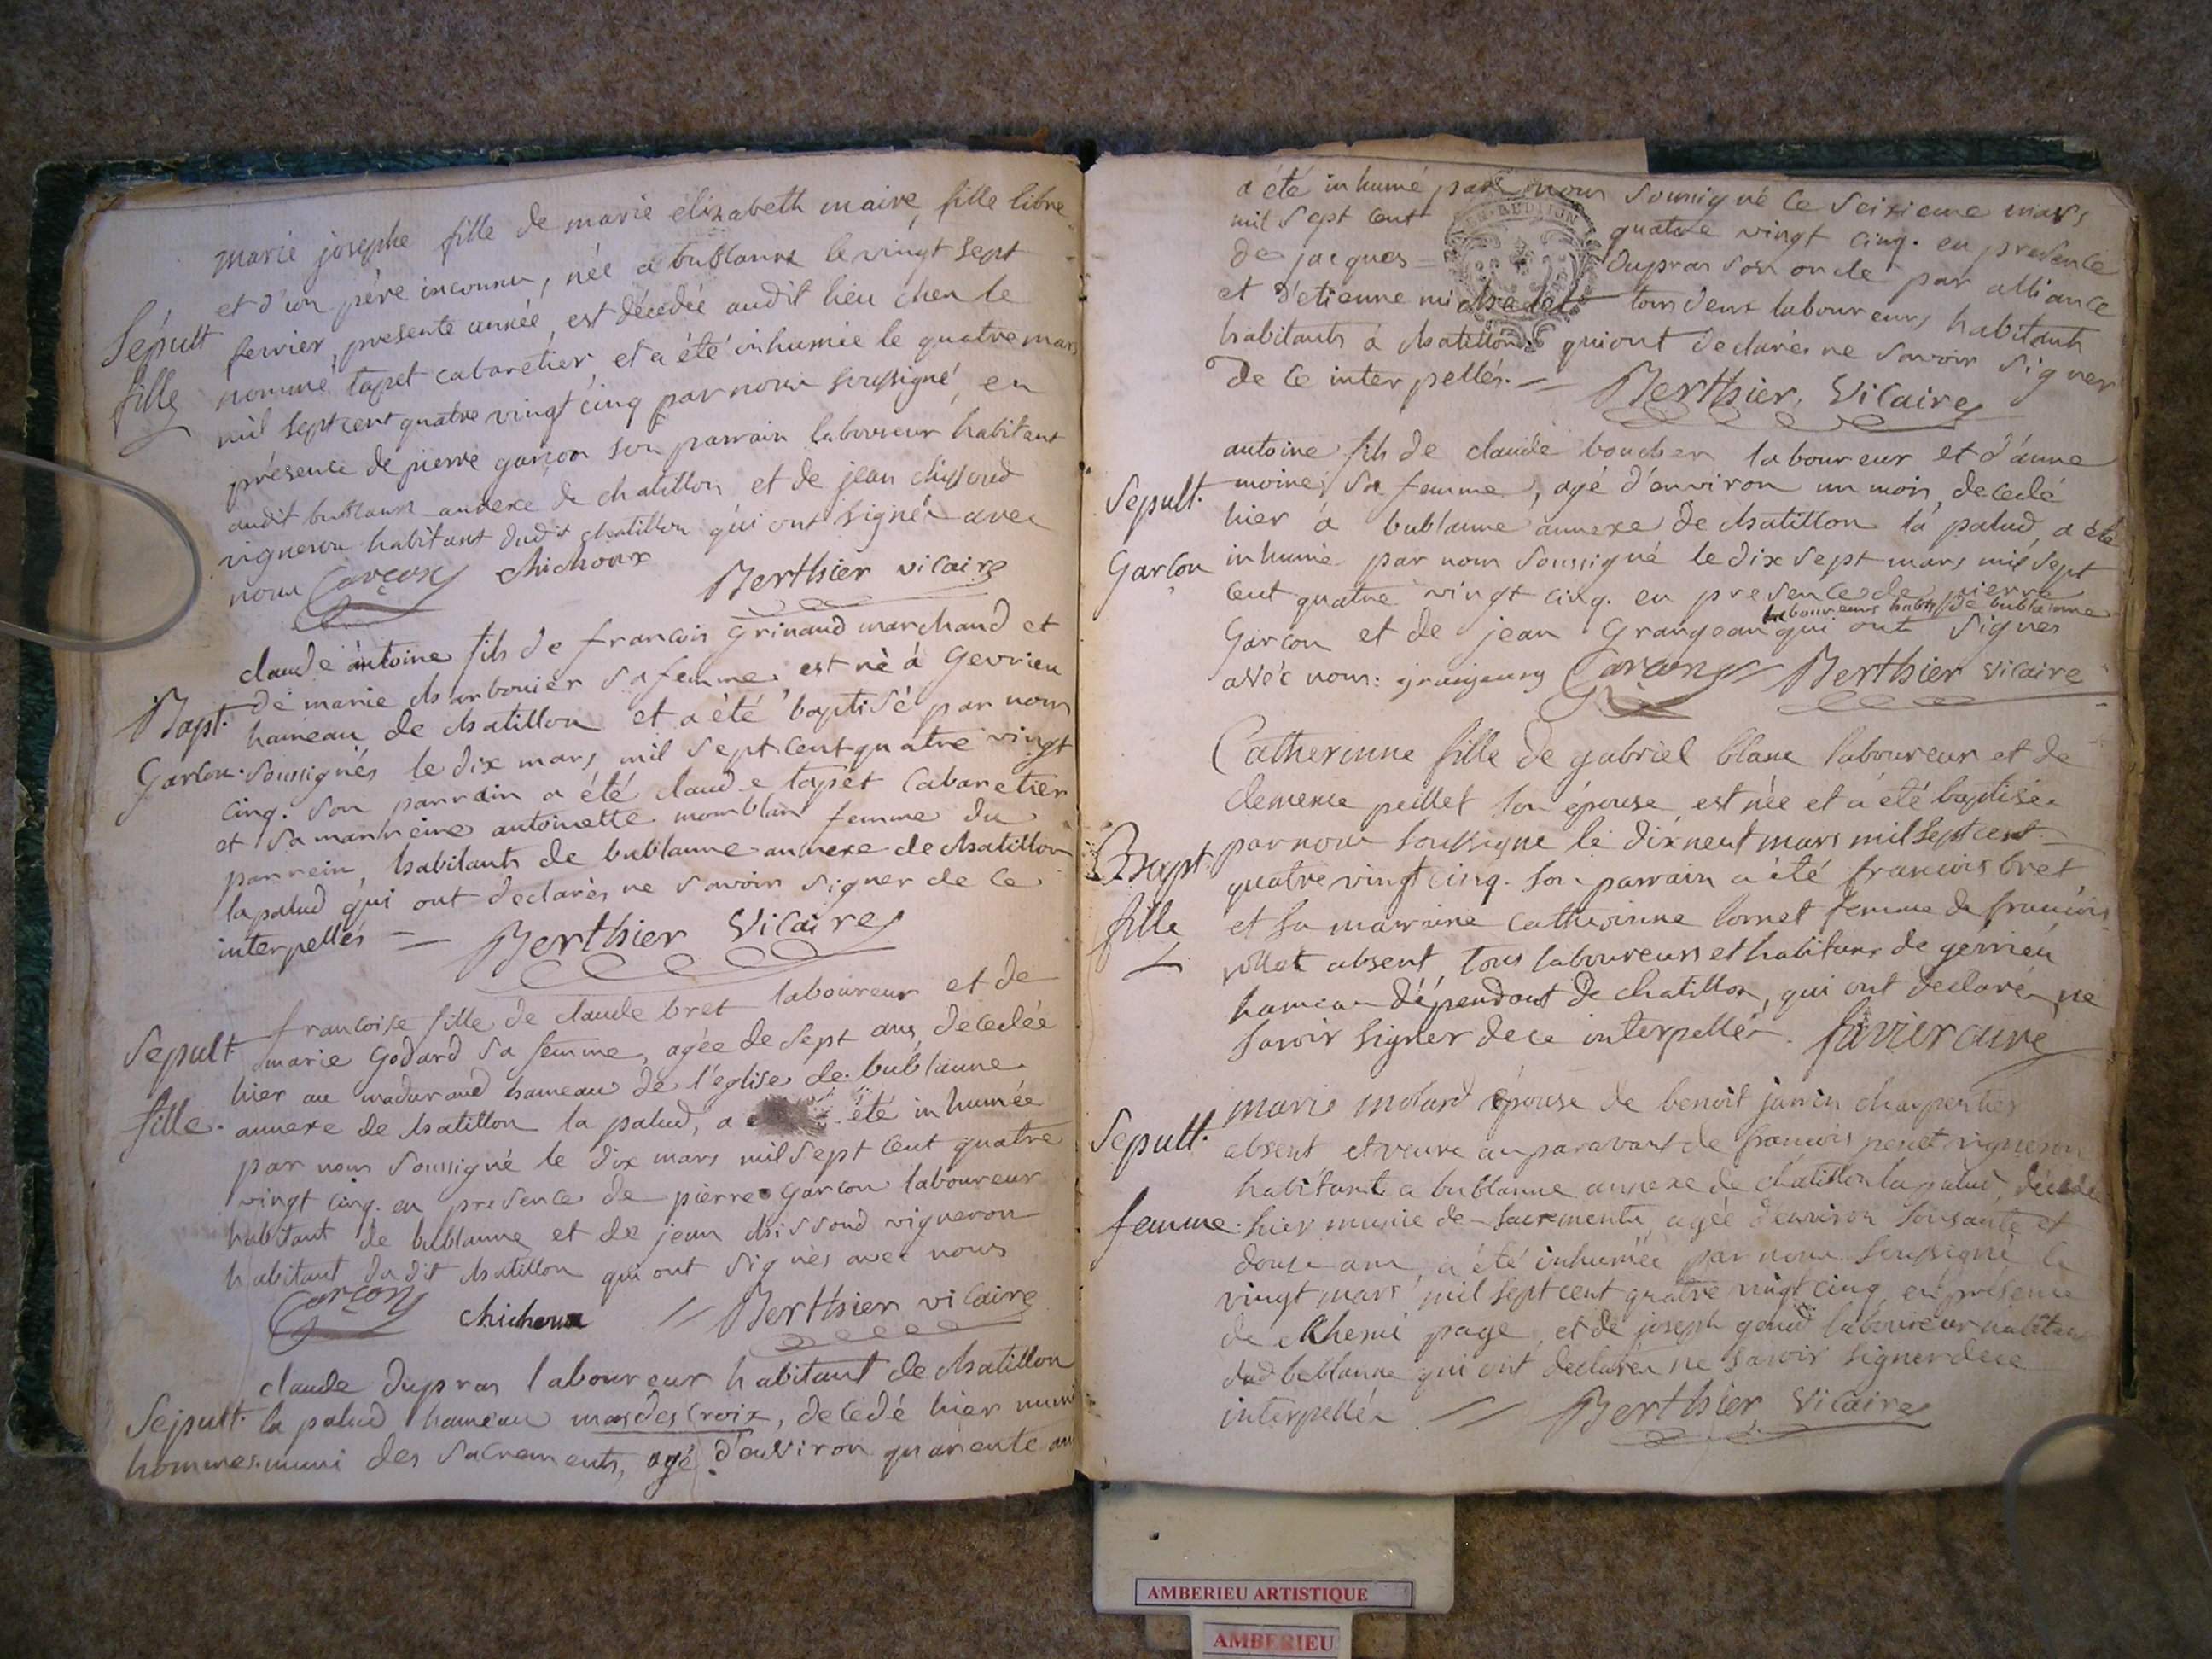 marie josephe fille de marie elizabeth maire, fille libre
et d'un père inconnu, née a bublanne le vingt sept
Sépult fevrier, presente année, est décedée audit lieu chez le
fille nommé tapet cabaretier, et a été inhumée le quatre mars
mil sept cent quatre vingt cinq par nous soussigné, en
présence de pierre garçon son parrain laboureur habitant
audit bublanne annexe de chatillon et de jean chissoud
vigneron habitant dudit chatillon qui ont signés avec
nous Garçon chichoux Berthier vicaire
claude antoine fils de francois Grinand marchand et
de marie charbonier sa femme, est nè á Gevrieu
Bapt. hameau de chatillon et a été baptisé par nous
Garcon. soussignés le dix mars mil sept cent quatre vingt
cinq. son parrain a été claude tapet cabaretier
et sa marreine antoinette momblan femme du
parrein, habitants de bublanne annexe de chatillon
la palud qui ont declarés ne savoir signer de ce
interpellés = Berthier Vicaire
francoise fille de claude bret laboureur et de
Sepult. marie Godard sa femme, agée de sept ans, decedée
hier au maduraud hameau de l'eglise de bublanne
fille. annexe de chatillon la palud, a été inhumée
par nous soussigné le dix mars mil sept cent quatre
vingt cinq. en presence de pierre Garcon laboureur
habitant de bublanne et de jean chissoud vigneron
habitant dudit chatillon qui ont signés avec nous
Garçon chichoux // Berthier vicaire
claude dupras laboureur habitant de chatillon
Sepult. la palud hameau mas des croix, decedé hier muni
hommes. muni des sacrements, agé d'environ quarente ans
a été inhumé par nous soussigné le seizieme mars
mil sept cent quatre vingt cinq. en presence
de jacques = dupras son oncle par alliance
et d'etienne michadet tous deux laboureurs habitants
habitants á chatillon qui ont declarés ne savoir signer
de ce interpellés. = Berthier, Vicaire
antoine fils de claude boucher laboureur et d'anne
Sepult. moine sa femme, agé d'environ un mois, decedé
hier á bublanne annexe de chatillon la palud, a été
Garcon inhumé par nous soussigné le dix sept mars mil sept
cent quatre vingt cinq. en presence de pierre
laboureurs habts de bublanne
Garcon et de jean Grangean qui ont signés
avec nous: grangeang Garcon // Berthier vicaire
Catherinne fille de gabriel blanc laboureur et de
clemence peillet son épouse, est née et a été baptisée
Bapt. par nous soussigné le dix neuf mars mil sept cent
quatre vingt cinq. son parrain a été francois bret
fille et sa marraine catherinne cornet femme de francois
absent, tous laboureurs et habitans de gevrieu
hameau dépendant de chatillon, qui ont declarés ne
savoir signer de ce interpellés. favier curé
marie motard épouse de benoit janin charpentier
Sepult. absent et veuve auparavant de francois penet vigneron
habitante a bublanne annexe de chatillon la palud, décedée
femme. hier munie de sacrements, agée d'environ soisante et
douze ans, a été inhumée par nous soussigné le
vingt mars mil sept cent quatre vingt cinq, en presence
de page, et de joseph goud laboureur habitans
dud bublanne qui ont declarés ne savoir signer de ce
interpellés // Berthier, Vicaire
AMBERIEU ARTISTIQUE
AMBERIEU